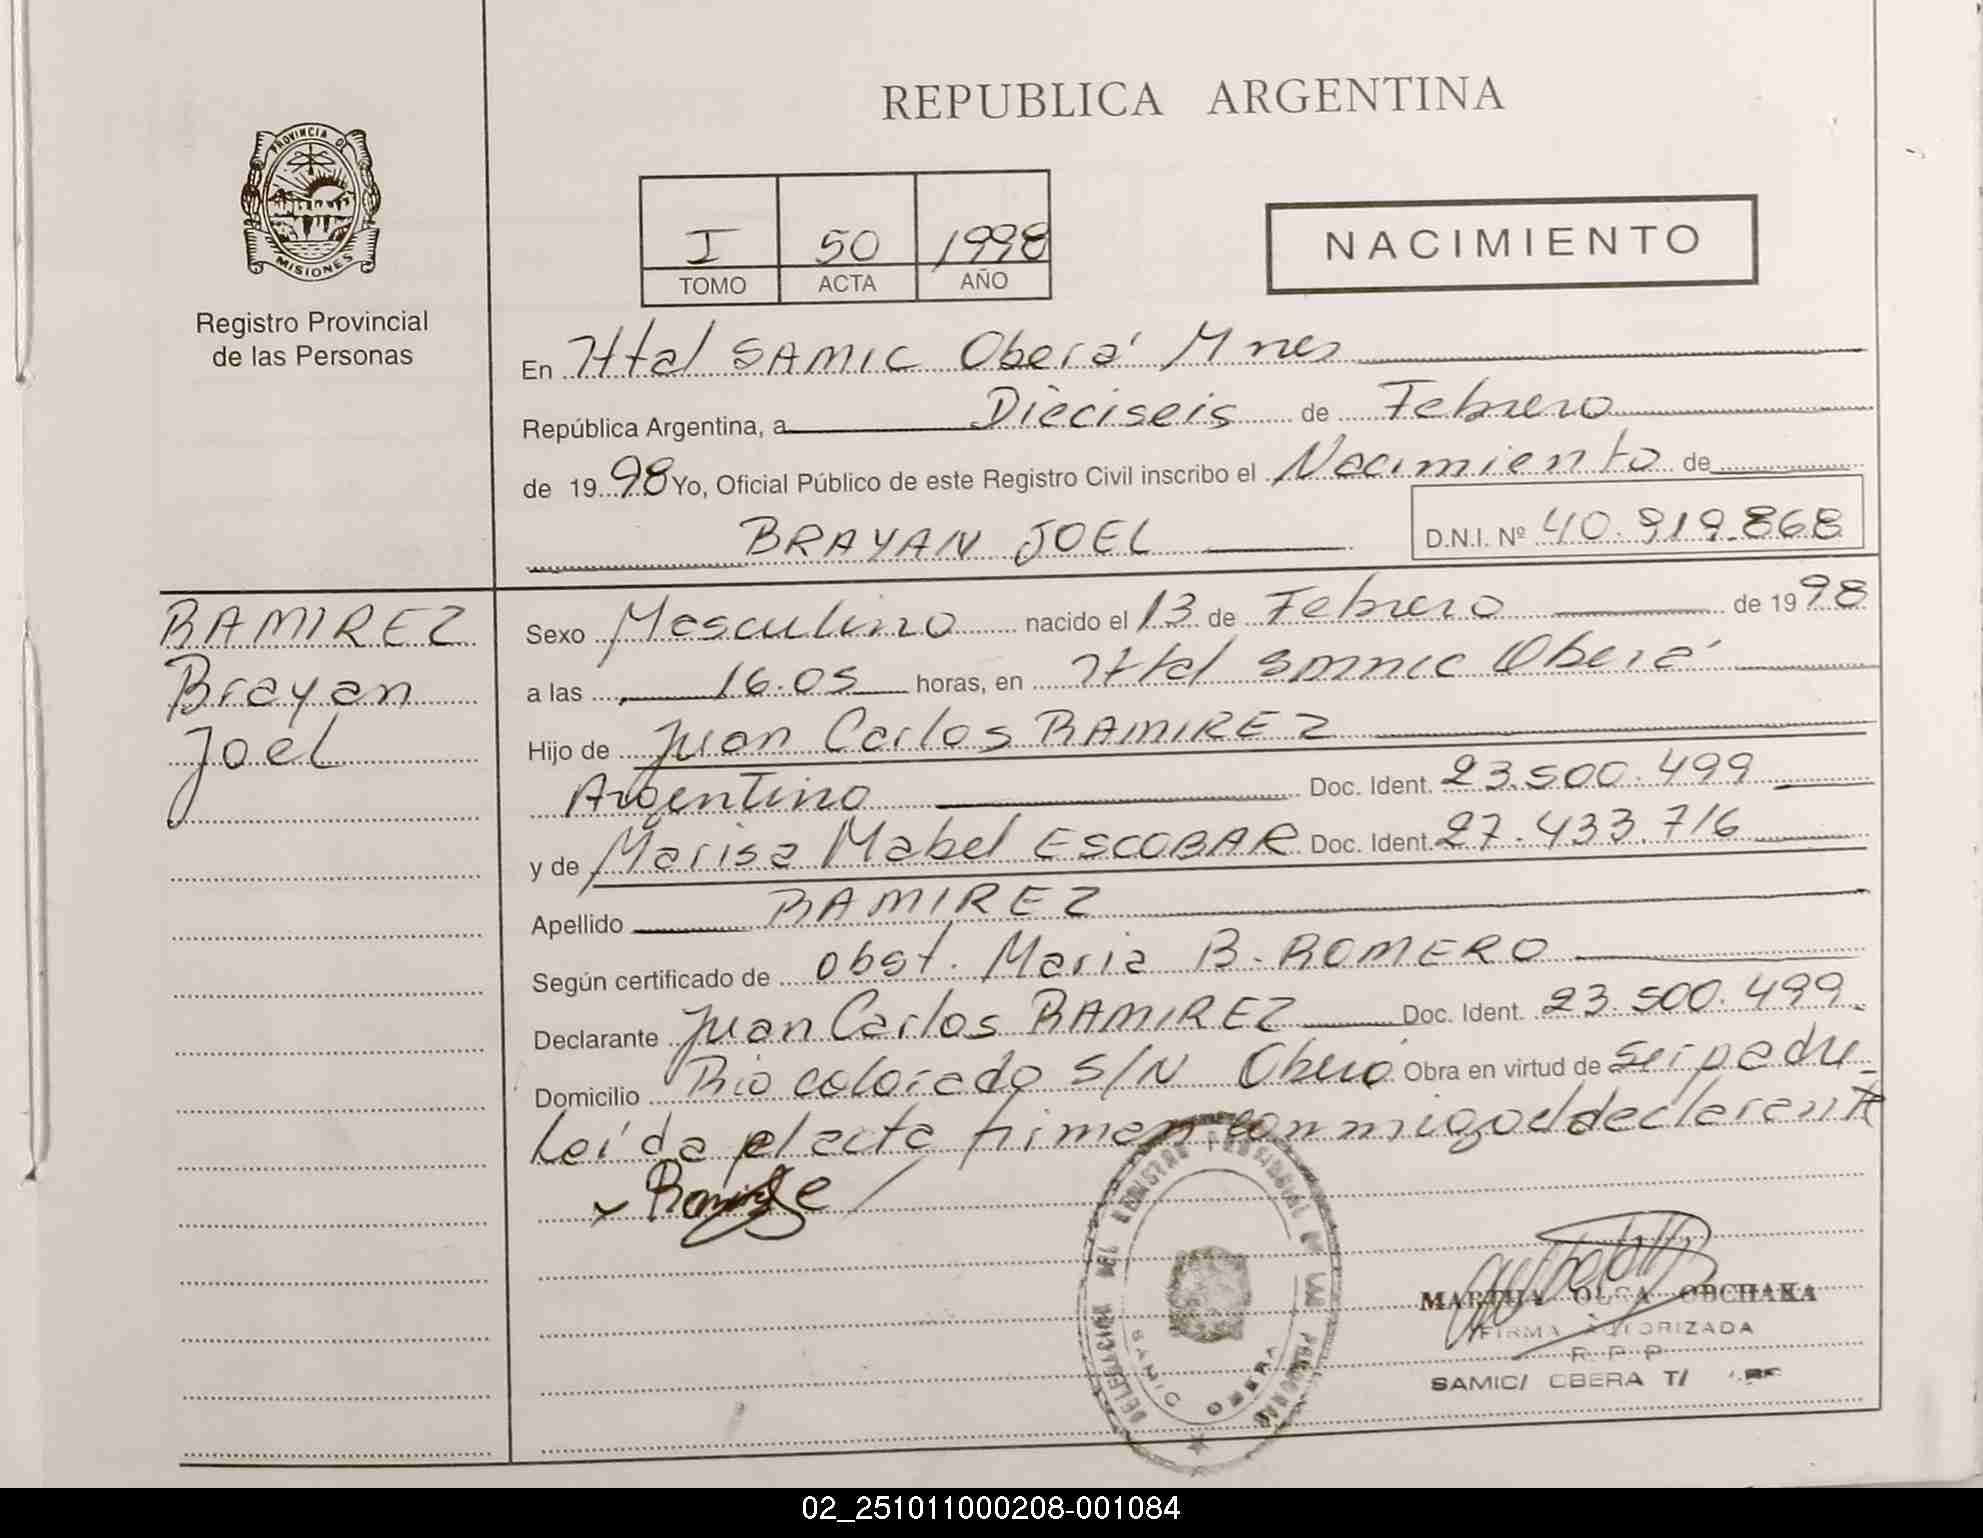 REPUBLICA ARGENTINA
PROVINCIA DE
MISIONES
Registro Provincial
de las Personas
I 50 1998
TOMO ACTA AÑO
NACIMIENTO
En Htal SAMIC Oberá Mnes
República Argentina, a Dieciseis de Febrero
de 19 98 Yo, Oficial Público de este Registro Civil inscribo el Nacimiento de
BRAYAN JOEL D.N.I. Nº 40.919.868
RAMIREZ
Brayan
Joel
Sexo Masculino nacido el 13 de Febrero de 19 98
a las 16.05 horas, en Htal SAMIC Oberá
Hijo de Juan Carlos RAMIREZ
Argentino Doc. Ident. 23.500.499
y de Marisa Mabel ESCOBAR Doc. Ident. 27.433.716
Apellido RAMIREZ
Según certificado de obst. Maria B. ROMERO
Declarante Juan Carlos RAMIREZ Doc. Ident. 23.500.499
Domicilio Rio colorado S/N Oberá Obra en virtud de ser padre
Leída el acta firman conmigo el declarante
DELEGACION DEL REGISTRO PROVINCIAL DE LAS PERSONAS
SAMIC OBERA
MARTHA OLGA OBCHAKA
FIRMA AUTORIZADA
R P P
SAMIC/ OBERA T/
02_251011000208-001084